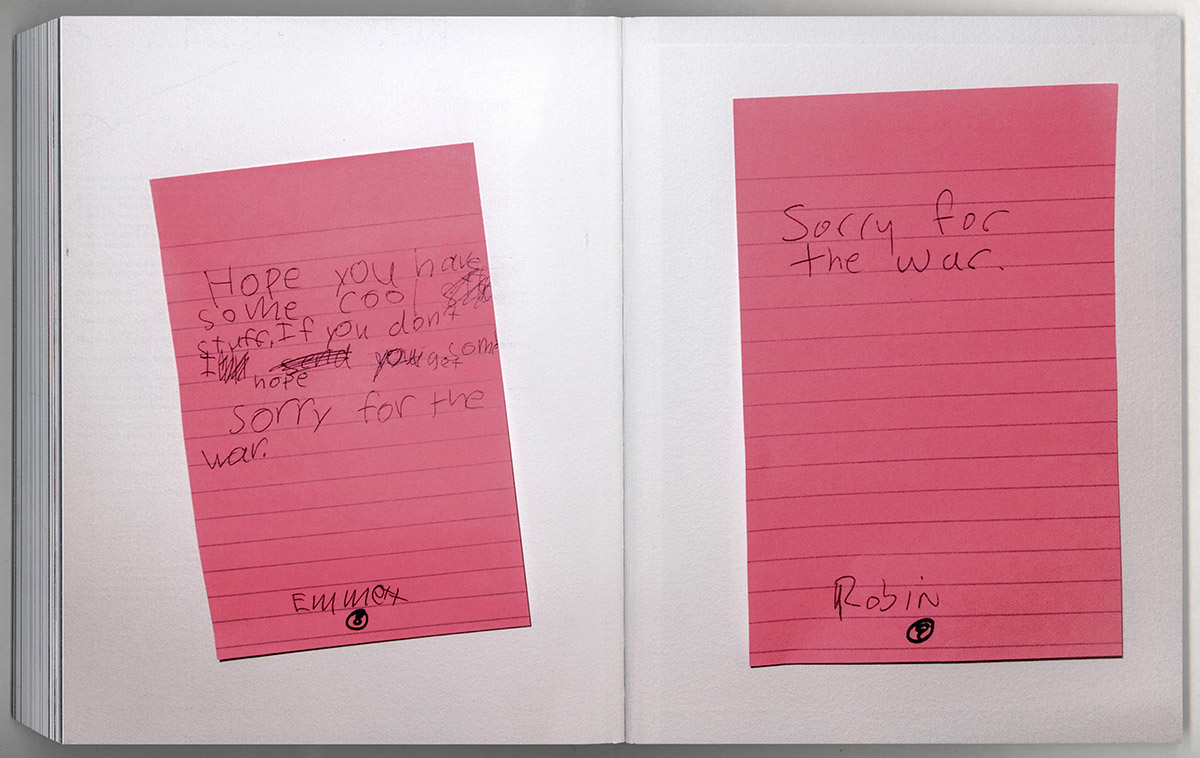 Hope you have
some cool
stuff. If you don't
I hope you get some
Sorry for the
war.
Emmex
8
Sorry for
the war.
Robin